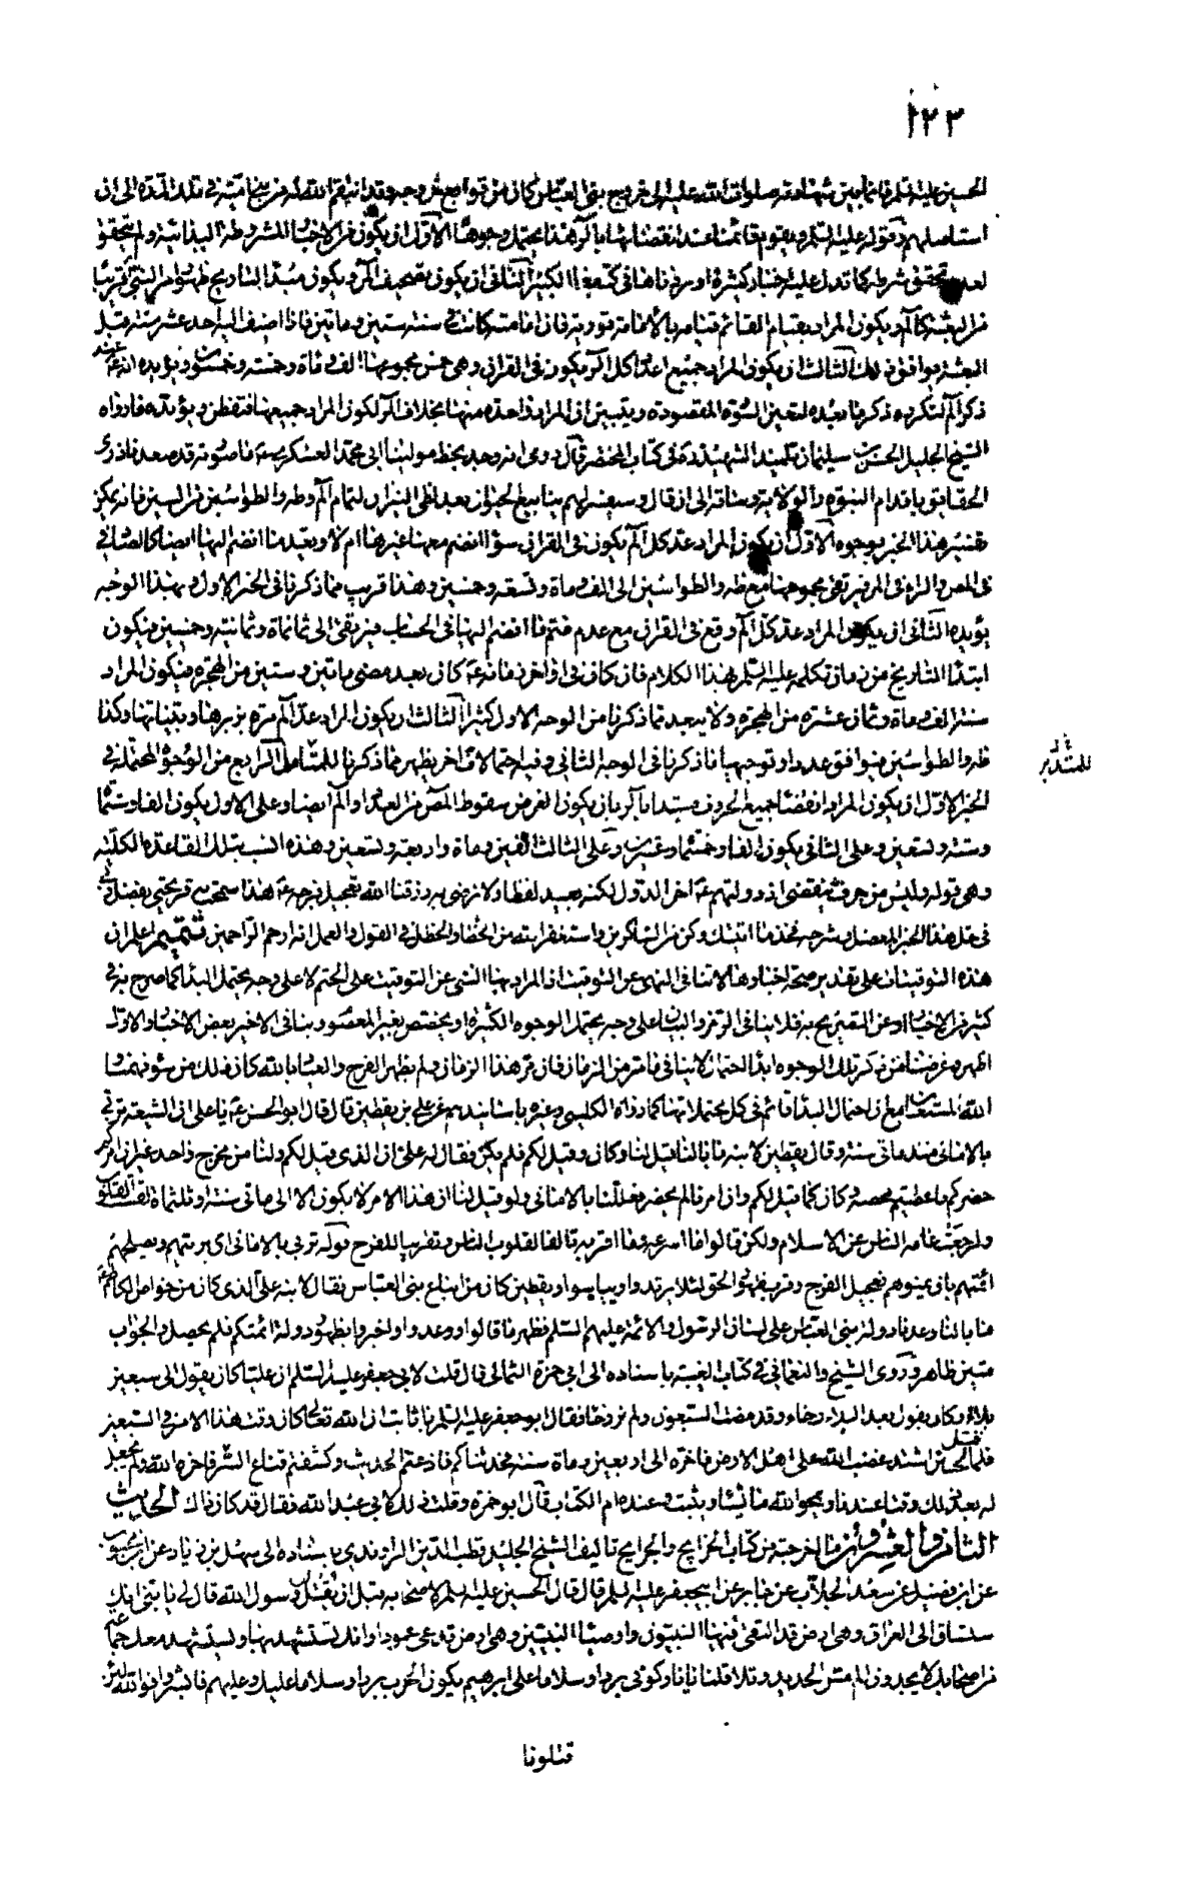 ١٢٣
الحسين عليه السلم فان ما بين شهادته صلوات الله عليه الى خروج بنى العباس كان من توابع خروجه وقد انتقم الله له من بنى امية فى تلك المدة الى ان
استاصلهم قوله عليه السلم ويقوم قائمنا عند انقضائها بالر هذا يحتمل وجوها الاول ان يكون من الاخبار المشروطة البدائية ولم يتحقق
لعدم تحقق شرطه كما تدل عليه اخبار كثيرة الثانى ان يكون تصحيف المر ويكون مبدأ التاريخ ظهور امر النبى قريبا
من البعثة كالم ويكون المراد بقيام القائم قيامه بالامامة تورية فان امامته كانت فى سنة ستين وماتين فاذا اضيف اليه احد عشر سنة قبل
البعثة يوافق ذلك الثالث ان يكون المراد جميع اعداد كل الر يكون فى القران وهى خمس مجموعها الف ومائة وخمسة وخمسون ويؤيده انه ع عند
ذكر الم لتكرره ذكر ما بعده لتعين السورة المقصودة ويتبين ان المراد واحدة منها بخلاف الر لكون المراد جميعها فتفطن ويؤيده ما رواه
الشيخ الجليل الحسن بن سليمان تلميذ الشهيد ره فى كتاب المحتضر قال روى انه وجد بخط مولينا ابى محمد العسكرى ع ما صورته قد صعدنا ذرى
الحقايق باقدام النبوة والولاية وساقه الى ان قال وسيفسر لهم ينابيع الحيوان بعد لظى النيران لتمام الم وطه والطواسين من السنين فانه يمكن
تفسير هذا الخبر بوجوه الاول ان يكون المراد عد كل الم يكون فى القران سواء انضم معها غيرها ام لا وبعد ما انضم اليها ايضا كالصاد فى
فى المص والراء فى المر يرتقى مجموعها مع طه والطواسين الى الف ومائة وتسعة وخمسين وهذا قريب مما ذكرنا فى الخبر الاول وبهذا الوجه
يؤيده الثانى ان يكون المراد عد كل الم وقع فى القران مع عدم ضم ما انضم اليها فى الحساب فيرتقى الى ثمانمائة وثمانية وخمسين فيكون
ابتداء التاريخ من زمان تكلمه عليه السلم بهذا الكلام فان كان فى اواخر زمانه ع كان بعد مضى ماتين وستين من الهجرة فيكون المراد
سنة الف ومائة وثمان عشرة من الهجرة ولا يبعد مما ذكرنا من الوجه الاول كثيرا الثالث ان يكون المراد عد الم مرة بزبرها وبيناتها وكذا
طه والطواسين فيوافق عدد او توجيها ما ذكرنا فى الوجه الثانى وفيه احتمالات اخر يظهر مما ذكرنا للمتامل الرابع من الوجوه المحتملة فى
للمتدبر
الخبر الاول ان يكون المراد انقضاء جميع الحروف مبتدأ بالر بان يكون الغرض سقوط المص من العدد او الم ايضا وعلى الاول يكون الفا وستمائة
وستة وتسعين وعلى الثانى يكون الفا وخمسمائة وعشرين وعلى الثالث الفين ومائة واربعة وتسعين وهذه انسب بتلك القاعدة الكلية
وهى قوله وليس من حرف ينقضى اذ دولتهم ع اخر الدول لكنه بعيد لفظا ولا نرضى به رزقنا الله تعجيل فرجه ع هذا ما سمحت به قريحتى بفضل ربى
فى حل هذا الخبر المعضل وشرحه فخذ ما اتيتك وكن من الشاكرين واستغفر الله من الخطا والخطل فى القول والعمل انه ارحم الراحمين تتميم اعلم ان
هذه التوقيتات على تقدير صحة اخبارها لا تنافى النهى عن التوقيت اذ المراد بها النهى عن التوقيت على الحتم لا على وجه يحتمل البداء كما صرح به فى
كثير من الاخبار او عن التصريح به فلا ينافى الرمز والبيان على وجه يحتمل الوجوه الكثيرة او يخصص بغير المعصوم وينافى الاخير بعض الاخبار والاول
اظهر وغرضنا من ذكر تلك الوجوه ابداء احتمال لا ينافى ما مر من الزمان فان مر هذا الزمان ولم يظهر الفرج والعياذ بالله كان ذلك من سوء فهمنا
الله المستعان مع ان احتمال البداء قائم فى كل محتملاتها كما رواه الكلينى وغيره باسانيدهم عن على بن يقطين قال قال ابو الحسن ع يا على ان الشيعة تربى
بالامانى منذ مائتى سنة وقال يقطين لابنه ما بالنا قيل لنا وكان وقيل لكم فلم يكن فقال له على ان الذى قيل لكم ولنا من مخرج واحد غير ان امركم
حضركم فاعطيتم محضه فكان كما قيل لكم وان امرنا لم يحضر فعللنا بالامانى ولو قيل لنا ان هذا الامر لا يكون الا الى مائتى سنة او ثلثمائة لقست القلوب
ولرجعت عامة الناس عن الاسلام ولكن قالوا ما اسرعه وما اقربه تالفا لقلوب الناس وتقريبا للفرج قوله تربى بالامانى اى يربيهم ويصلحهم
ائمتهم بان يمنوهم تعجيل الفرج وقرب ظهور الحق لئلا يرتدوا وييأسوا ويقطين كان من اتباع بنى العباس فقال لابنه على الذى كان من خواص الكاظم ع
ما بالنا وعدنا دولة بنى العباس على لسان الرسول والائمة عليهم السلم فظهر ما قالوا ووعدوا واخبروا بظهور دولة ائمتكم فلم يحصل والجواب
متين ظاهر وروى الشيخ والنعمانى فى كتاب الغيبة باسناده الى ابى حمزة الثمالى قال قلت لابى جعفر عليه السلم ان عليا كان يقول الى سبعين
بلاء وكان يقول بعد البلاء رخاء وقد مضت السبعون ولم نر رخاء فقال ابو جعفر عليه السلم يا ثابت ان الله تعالى كان وقت هذا الامر فى السبعين
فلما قتل الحسين اشتد غضب الله على اهل الارض فاخره الى اربعين ومائة سنة فحدثناكم فاذعتم الحديث وكشفتم قناع الستر فاخره الله ولم يجعل
له بعد ذلك وقتا عندنا ويمحو الله ما يشاء ويثبت وعنده ام الكتاب قال ابو حمزة وقلت ذلك لابى عبد الله فقال قد كان ذاك الحديث
الثامن والعشرون ما اخرجته من كتاب الخرايج والجرايح تاليف الشيخ الجليل قطب الدين الراوندى باسناده الى سهل بن زياد عن ابن محبوب
عن ابن فضيل عن سعد الجلاب عن جابر عن ابى جعفر عليه السلم قال قال الحسين عليه السلم لاصحابه قبل ان يقتل ان رسول الله قال لى يا بنى انك
ستساق الى العراق وهى ارض قد التقى فيها النبيون واوصياء النبيين وهى ارض تدعى عمورا وانك تستشهد بها ويستشهد معك جماعة
من اصحابك لا يجدون الم مس الحديد وتلا قلنا يا نار كونى بردا وسلاما على ابرهيم يكون الحرب بردا وسلاما عليك وعليهم فابشروا فوالله لئن
قتلونا